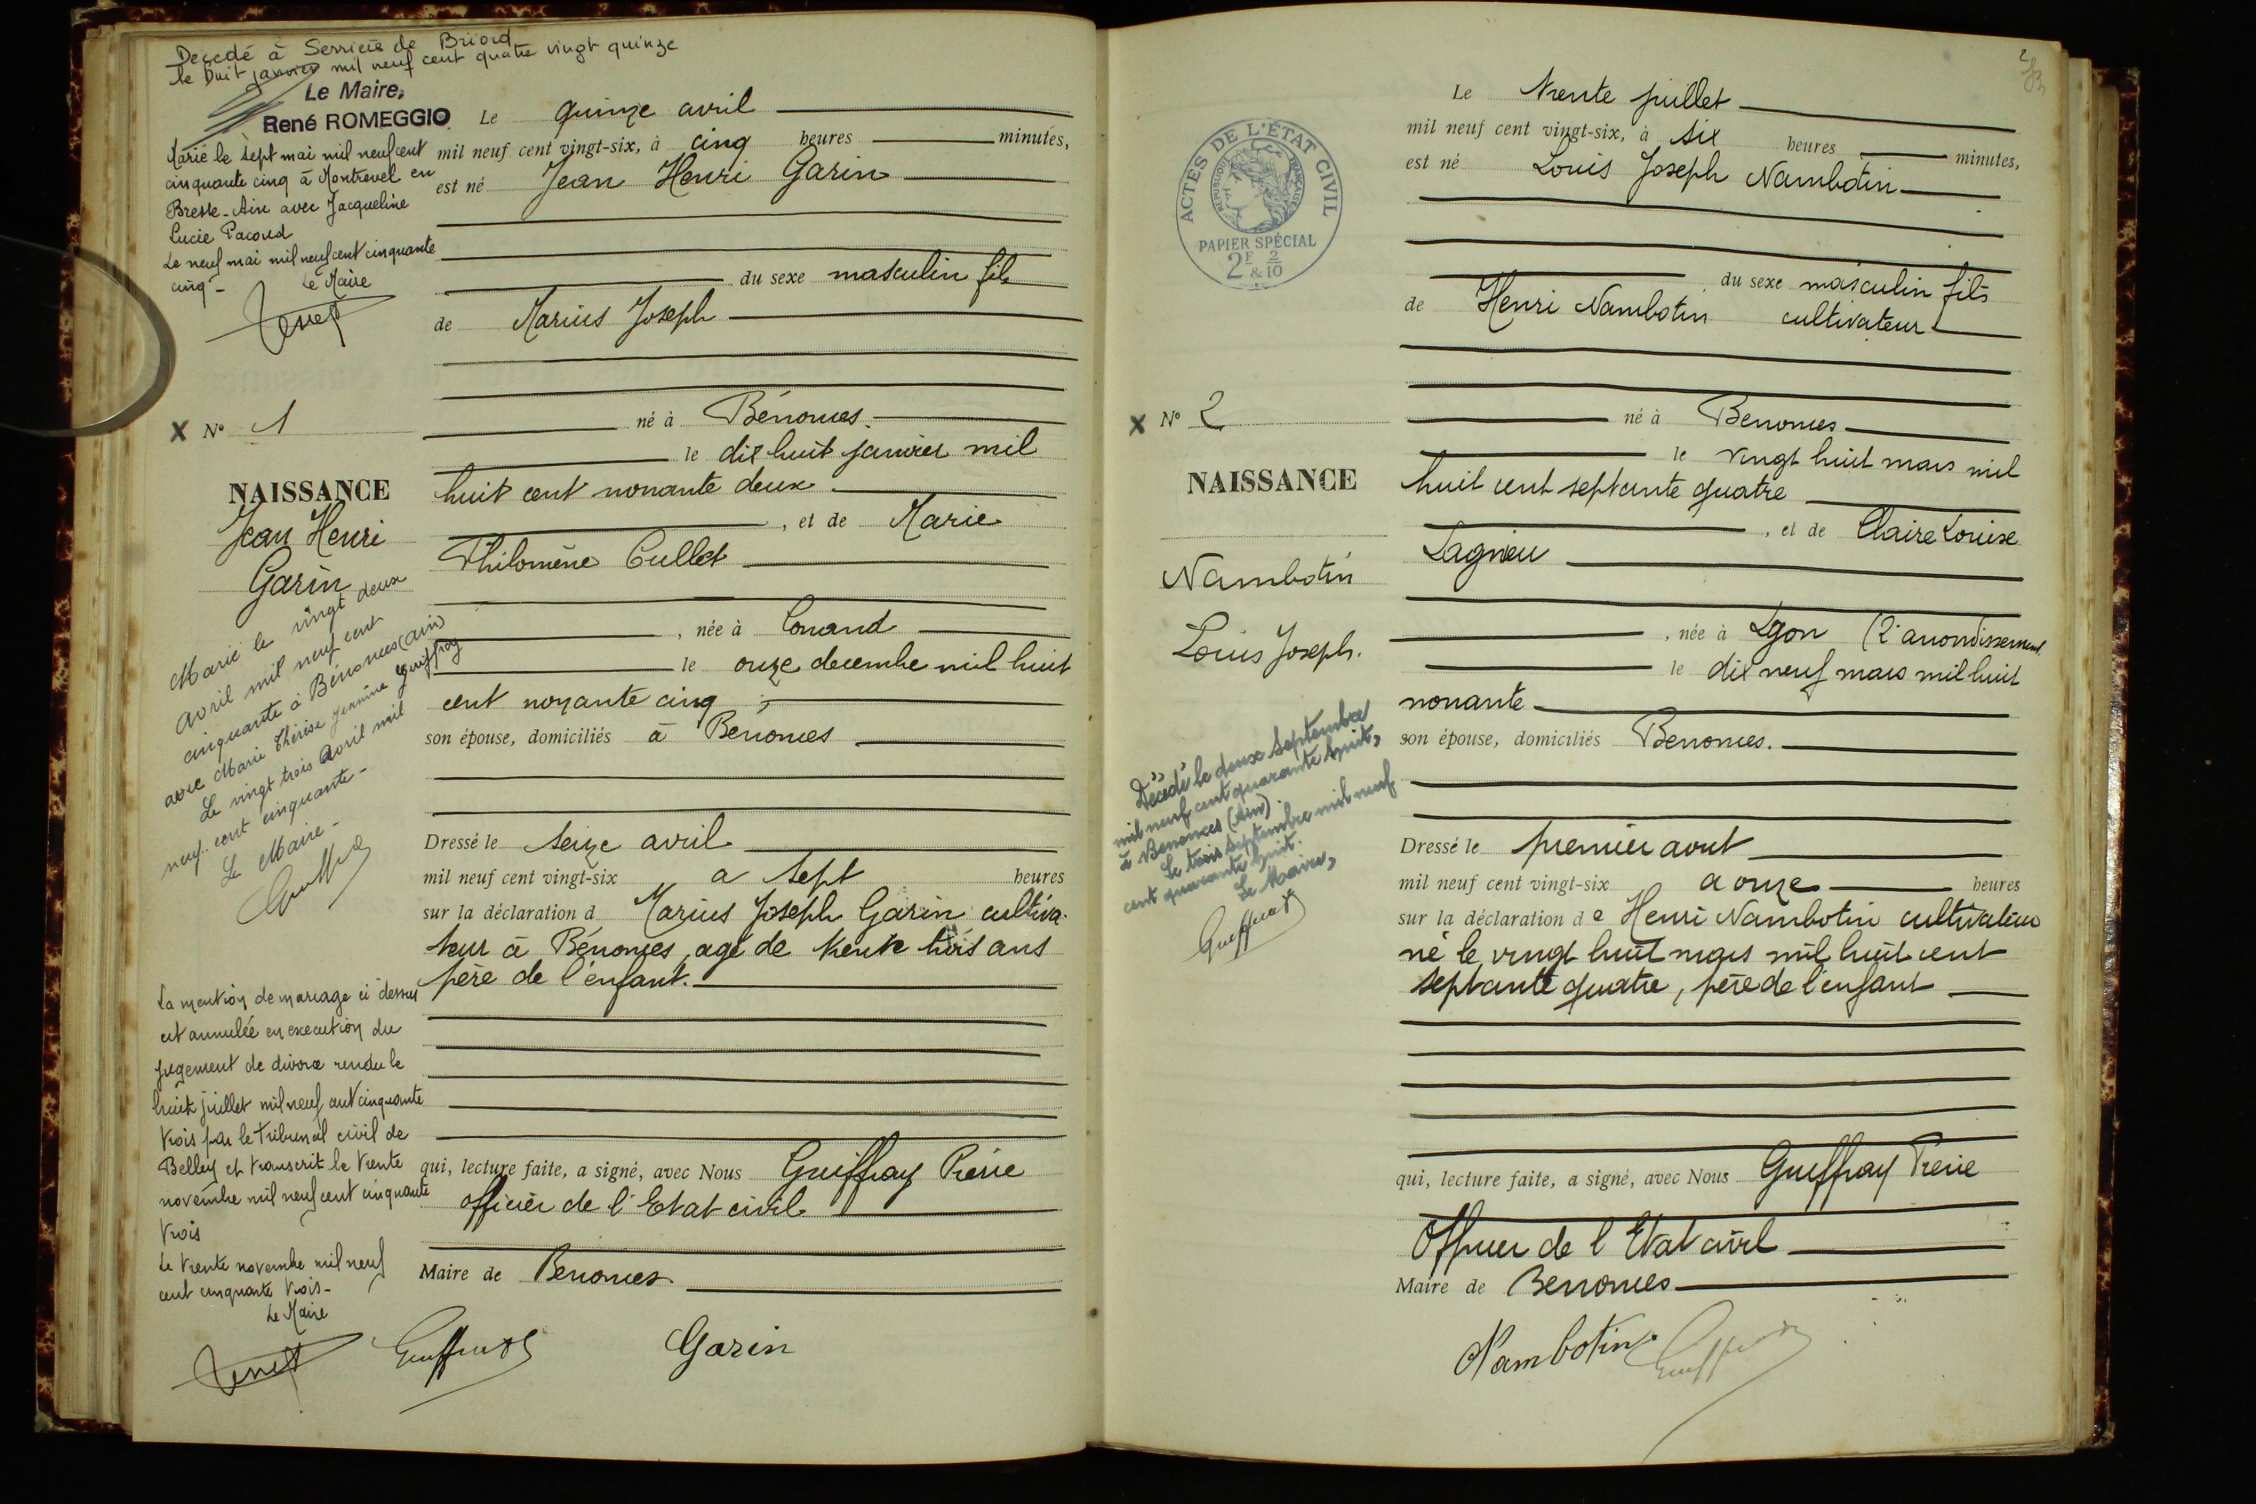 Decedé à Serrières de Briord
le huit janvier mil neuf cent quatre vingt quinze
Le Maire,
René ROMEGGIO
Marié le sept mai mil neuf cent
cinquante cinq à Montrevel en
Bresse-Ain avec Jacqueline
Lucie Pacoud
Le neuf mai mil neuf cent cinquante
cinq -
Le Maire
X N° 1
NAISSANCE
Jean Henri
Garin
Marié le vingt deux
avril mil neuf cent
cinquante à Bénonces (Ain)
avec Marie Thérèse Jeanine Guiffray
Le vingt trois Avril mil
neuf cent cinquante -
Le Maire -
La mention de mariage ci dessus
est annulée en execution du
jugement de divorce rendu le
huit juillet mil neuf cent cinquante
trois par le tribunal civil de
Belley et transcrit le trente
novembre mil neuf cent cinquante
trois
Le trente novembre mil neuf
cent cinquante trois -
Le Maire
Le quinze avril
mil neuf cent vingt-six, à cinq heures minutes,
est né Jean Henri Garin
du sexe masculin fils
de Marius Joseph
né à Bénonces
le dix huit janvier mil
huit cent nonante deux
, et de Marie
Philomène Cullet
, née à Conand
le onze decembre mil huit
cent nonante cinq
son épouse, domiciliés à Bénonces
Dressé le seize avril
mil neuf cent vingt-six a sept heures
sur la déclaration d Marius Joseph Garin cultiva-
teur à Bénonces, agé de trente trois ans
père de l'enfant.
qui, lecture faite, a signé, avec Nous Guiffray Pierre
officier de l'Etat civil
Maire de Benonces
Garin
2
ACTES DE L'ÉTAT CIVIL
RÉPUBLIQUE FRANÇAISE
PAPIER SPÉCIAL
2F & 2/10
X N° 2
NAISSANCE
Nambotin
Louis Joseph.
Décédé le deux septembre
mil neuf cent quarante huit,
à Benonces (Ain).
Le trois septembre mil neuf
cent quarante huit.
Le Maire,
Le trente juillet
mil neuf cent vingt-six, à six heures minutes,
est né Louis Joseph Nambotin
du sexe masculin fils
de Henri Nambotin cultivateur
né à Benonces
le vingt huit mars mil
huit cent septante quatre
, et de Claire Louise
Lagnieu
, née à Lyon (2e arrondissement
le dix neuf mars mil huit
nonante
son épouse, domiciliés Benonces.
Dressé le premier aout
mil neuf cent vingt-six a onze heures
sur la déclaration de Henri Nambotin cultivateur
né le vingt huit mars mil huit cent
septante quatre, père de l'enfant
qui, lecture faite, a signé, avec Nous Guiffray Pierre
Officier de l'Etat civil
Maire de Benonces
Nambotin